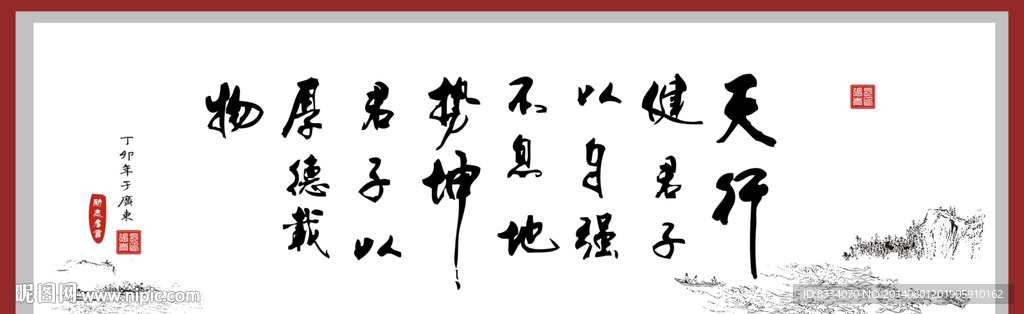 天行
健君子
以自强
不息地
势坤
君子以
厚德载
物
丁卯年于廣東
昵图网 www.nipic.com
ID:8334070 NO:20140891201905910162